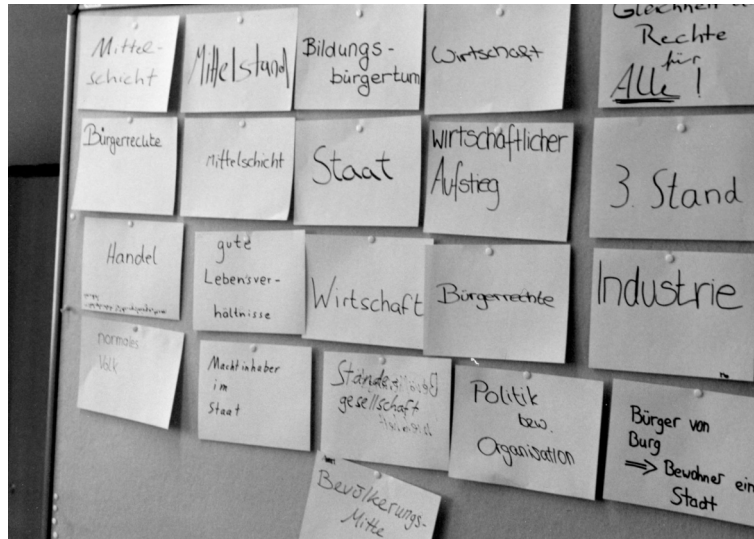 Mittel-
schicht
Mittelstand
Bildungs-
bürgertum
Wirtschaft
Rechte
für
Alle!
Bürgerrechte
Mittelschicht
Staat
wirtschaftlicher
Aufstieg
3. Stand
Handel
gute
Lebensver-
hältnisse
Wirtschaft
Bürgerrechte
Industrie
normales
Volk
Machtinhaber
im
Staat
Stände
gesellschaft
Politik
bzw.
Organisation
Bürger von
Burg
⇒ Bewohner ein
Stadt
Bevölkerungs-
Mitte